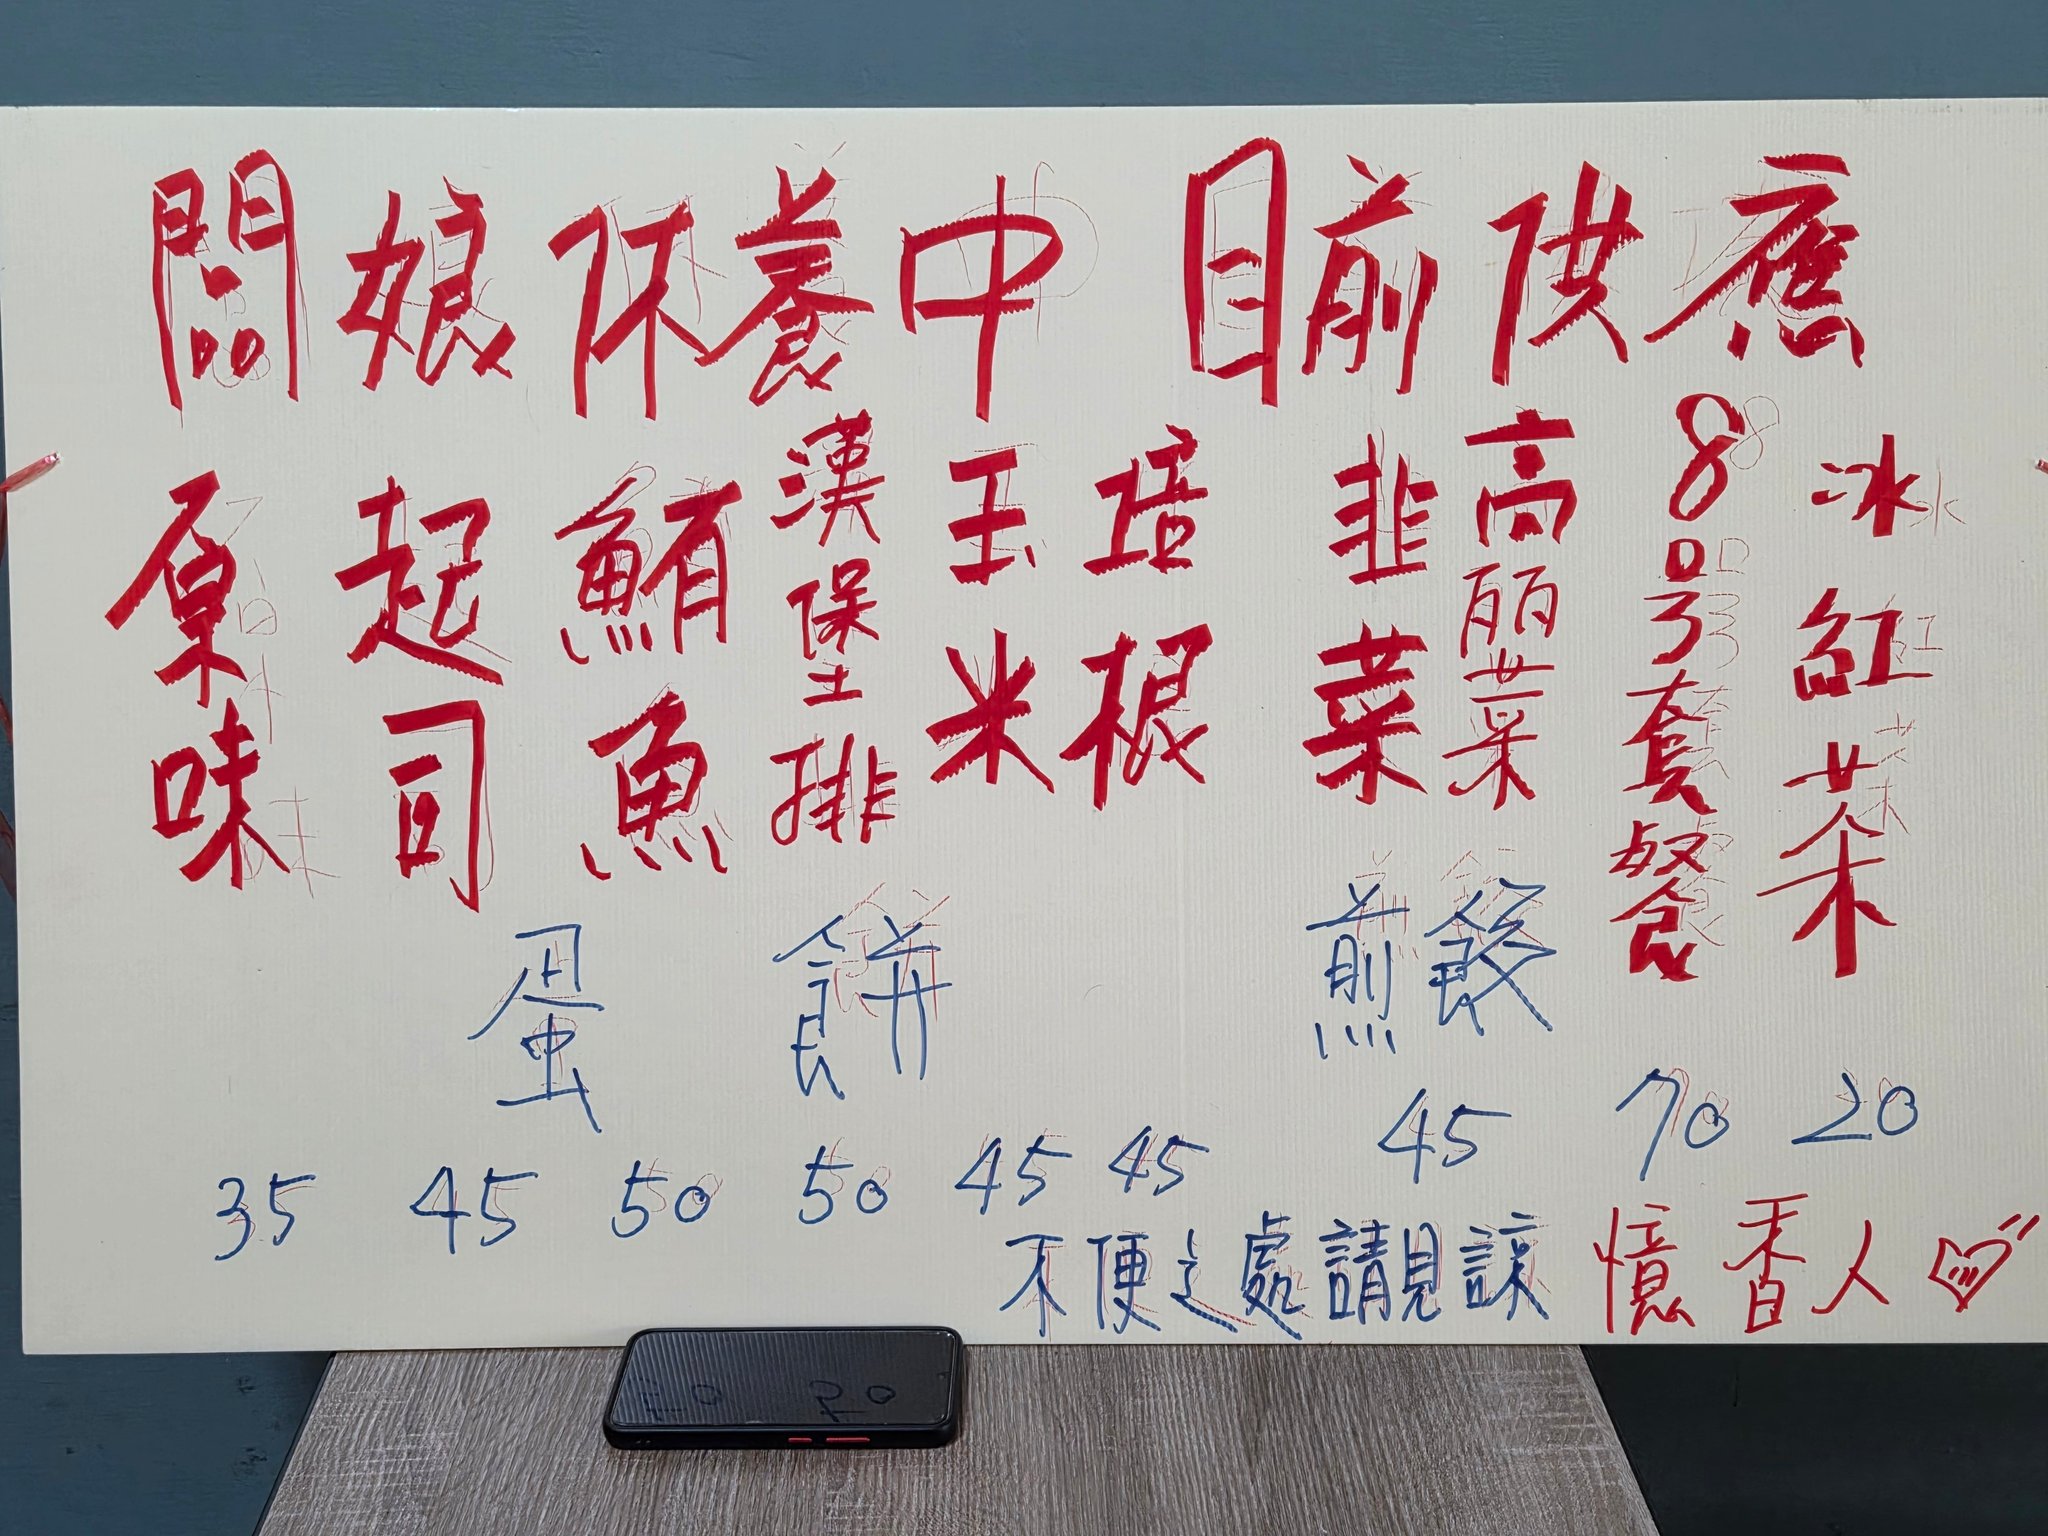 闆娘休養中 目前供應
原味
起司
鮪魚
漢堡排
玉米
培根
韭菜
高丽菜
8号套餐
冰紅茶
蛋餅
煎餃
35 45 50 50 45 45 45 70 20
不便之處請見諒 憶香人